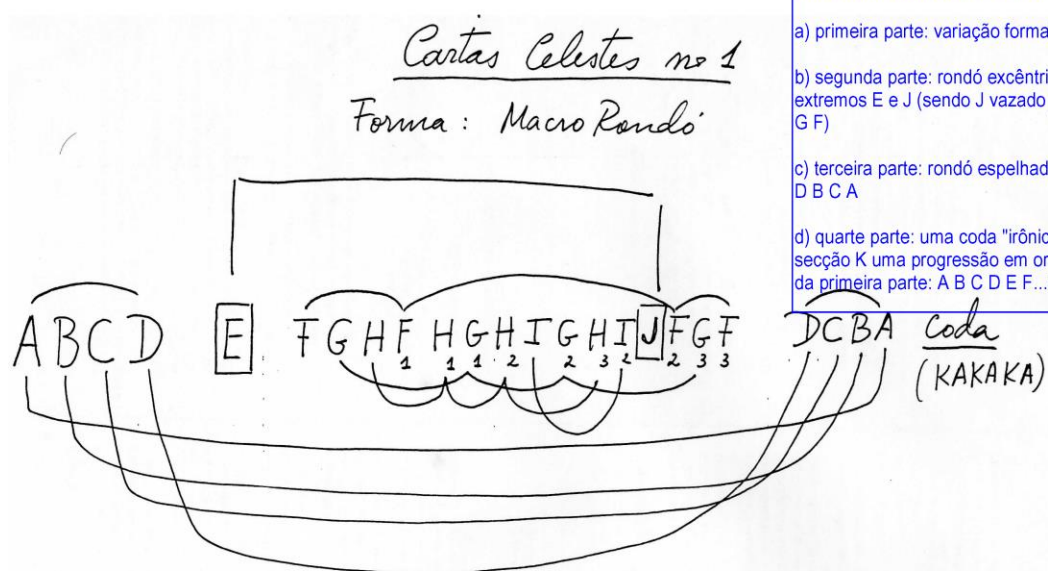 Cartas Celestes nº 1
Forma: Macro Rondó
a) primeira parte: variação forma
b) segunda parte: rondó excêntri
extremos E e J (sendo J vazado
G F)
c) terceira parte: rondó espelhad
D B C A
d) quarte parte: uma coda "irônic
secção K uma progressão em or
da primeira parte: A B C D E F...
A B C D E F G H F1 H1 G1 H2 I G2 H3 I2 J F2 G3 F3 D C B A Coda
(KAKAKA)